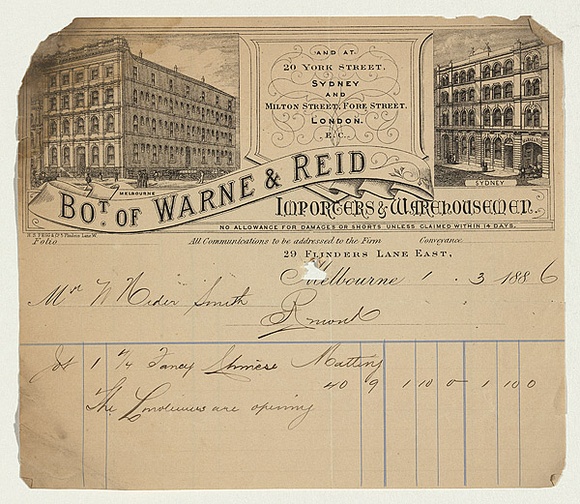 AND AT
20 YORK STREET,
SYDNEY
AND
MILTON STREET, FORE STREET,
LONDON.
E.C.
MELBOURNE
SYDNEY
BOT. OF WARNE & REID
IMPORTERS & WAREHOUSEMEN.
NO ALLOWANCE FOR DAMAGES OR SHORTS UNLESS CLAIMED WITHIN 14 DAYS.
Folio All Communications to be addressed to the Firm Conveyance
29 FLINDERS LANE EAST,
Melbourne 1 . 3 1886
Mr W Smith
1 4/4 Fancy Chinese Matting
40 9 1 10 0 1 10 0
The Linoleums are opening